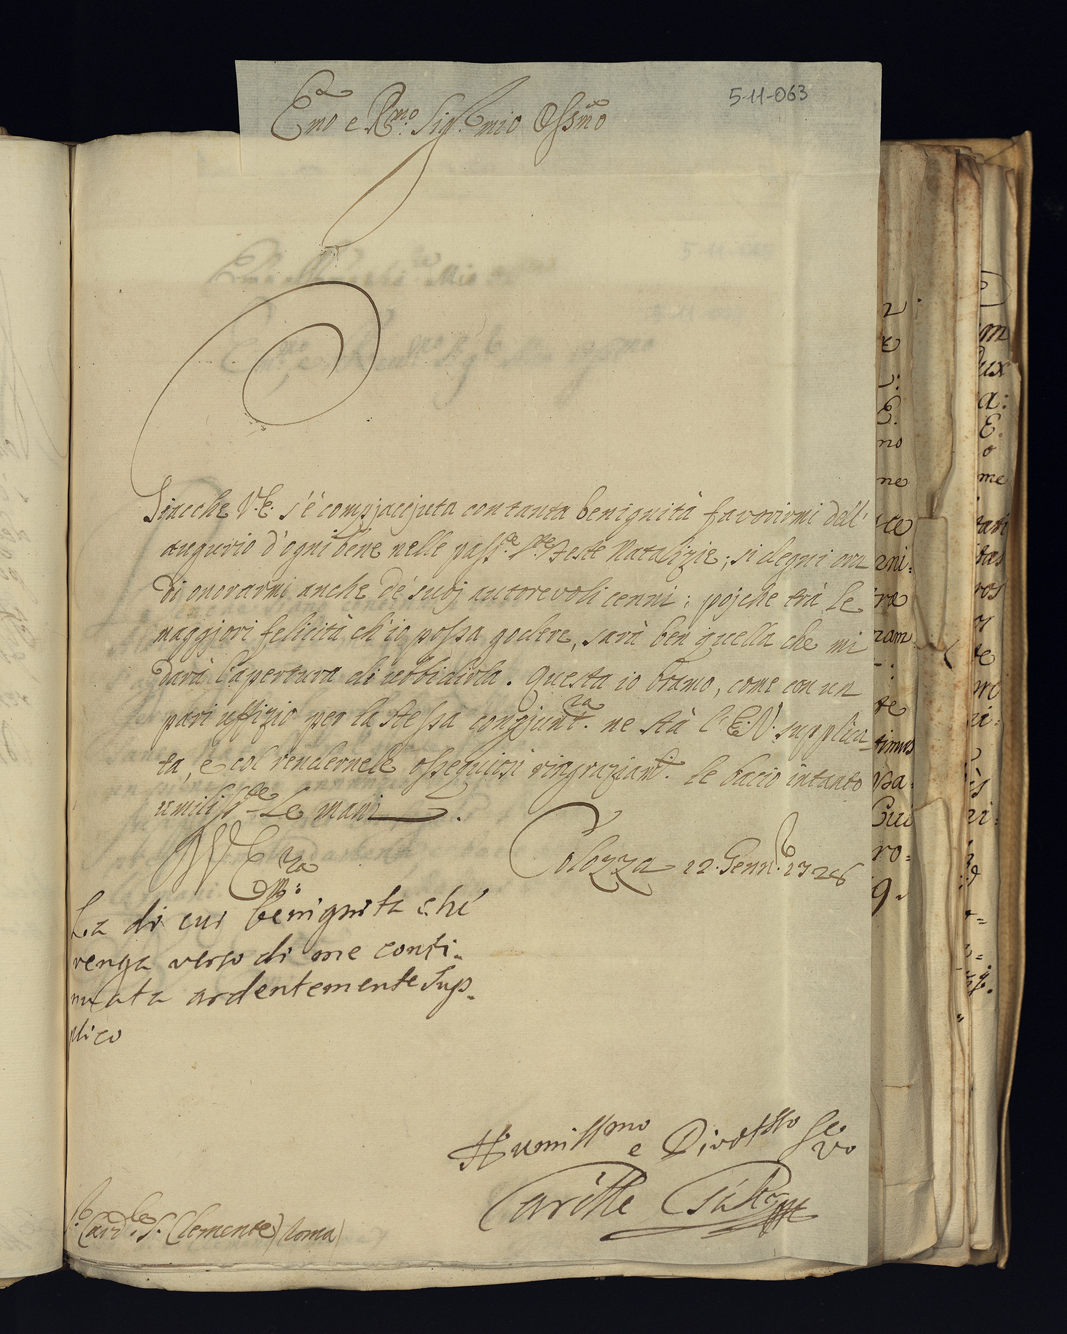 5-11-063
Emo e Rmo Sig.r mio Ossmo
Giacche V.E. s'è compiacciuta con tanta benignità favorirmi dell'
augurio d'ogni bene nelle pass.te Ste Feste Natalizie; si degni ora
di onorarmi anche de suoi autorevoli cenni; poiche trà le
maggiori felicità ch'io possa godere, sarà ben quella che mi
darà l'apertura di ubbidirla. Questa io bramo, come con un
pari uffizio per la stessa congiunt.ra ne stà l'E.V. supplica
ta, e col rendernele ossequiosi ringraziam.ti le bacio intanto
umilis.te Le mani.
Colozza 12. Genn.o 1726
La di cui benignita ché
venga verso di me conti-
nuata ardentemente Sup-
plico
Humillmo e Divotmo Servo
S.r Card.le S. Clemente (Roma)